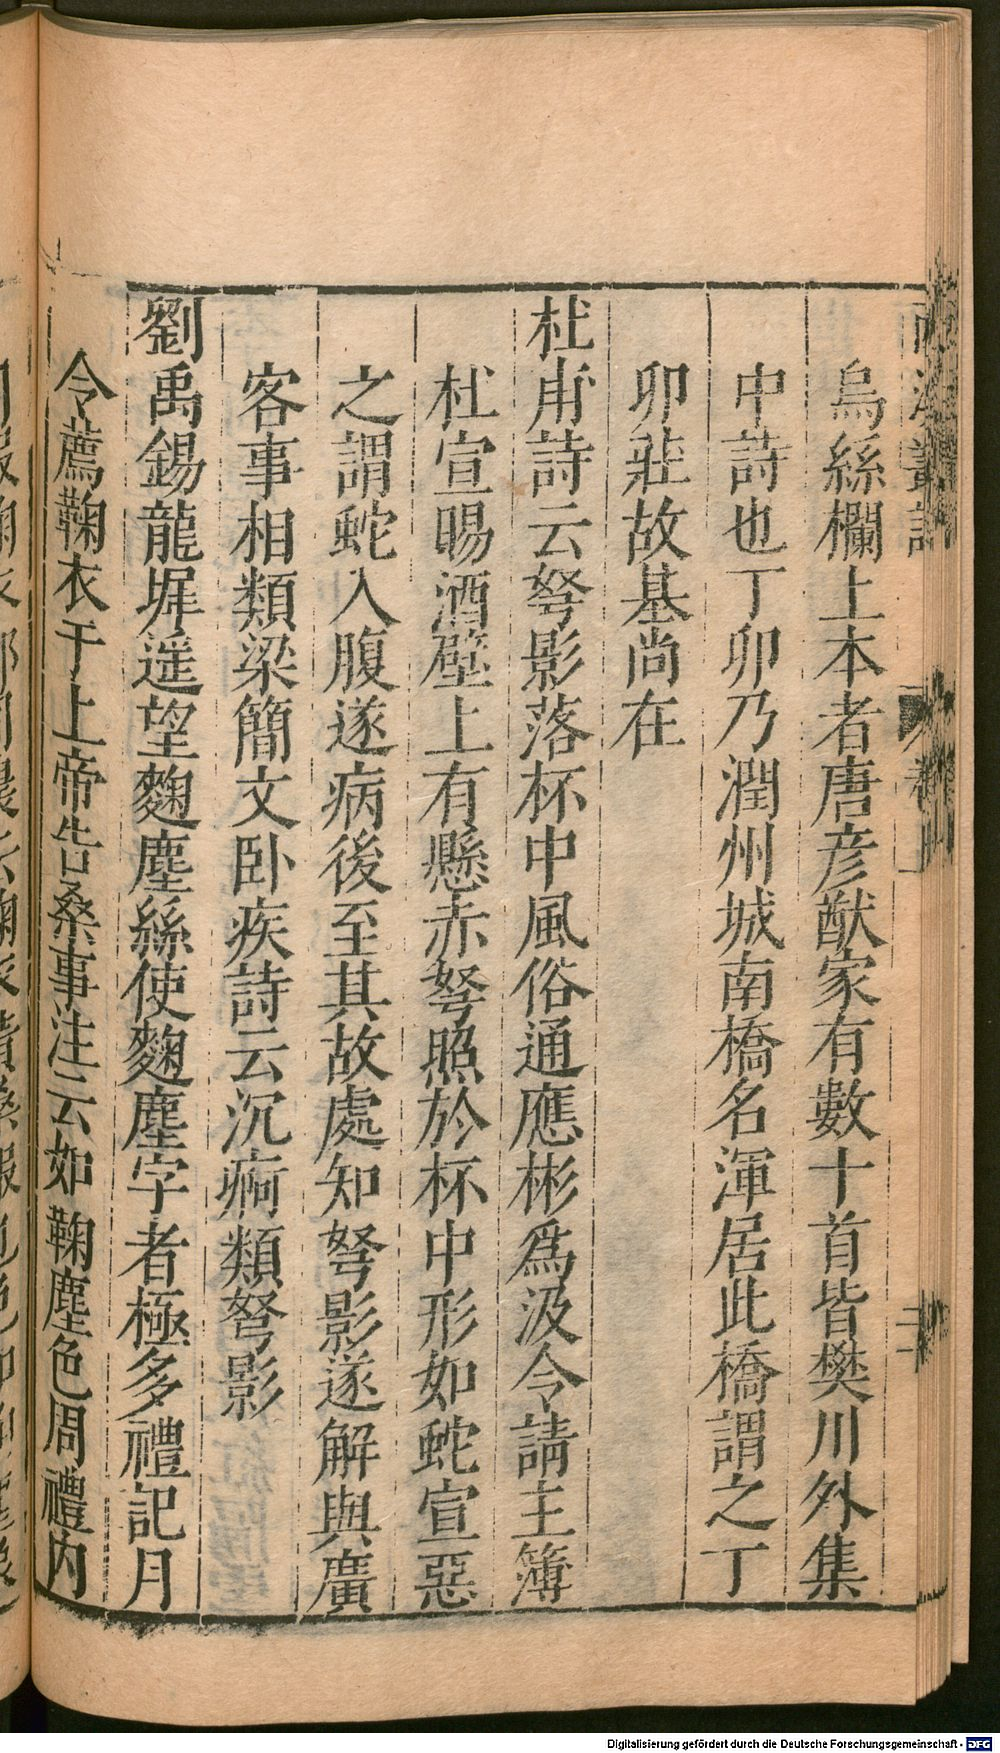 烏絲欄上本者唐彦猷家有數十首皆樊川外集
中詩也丁卯乃潤州城南橋名渾居此橋謂之丁
卯莊故基尚在
杜甫詩云弩影落杯中風俗通應彬爲汲令請主簿
杜宣賜酒壁上有懸赤弩照於杯中形如蛇宣惡
之謂蛇入腹遂病後至其故處知弩影遂解與廣
客事相類梁簡文卧疾詩云沉痾類弩影
劉禹錫龍墀遥望麴塵絲使麴塵字者極多禮記月
令薦鞠衣于上帝告桑事注云如鞠塵色周禮内
Digitalisierung gefördert durch die Deutsche Forschungsgemeinschaft - DFG